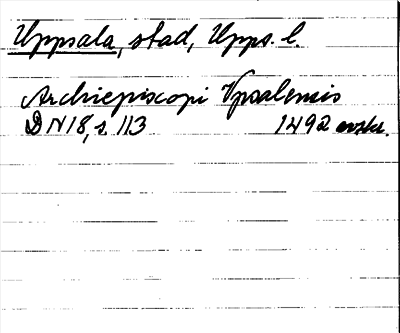 Uppsala, stad, Upps. l.
Archiepiscopi Vpsalensis
DN 18, s. 113 1492 avskr.